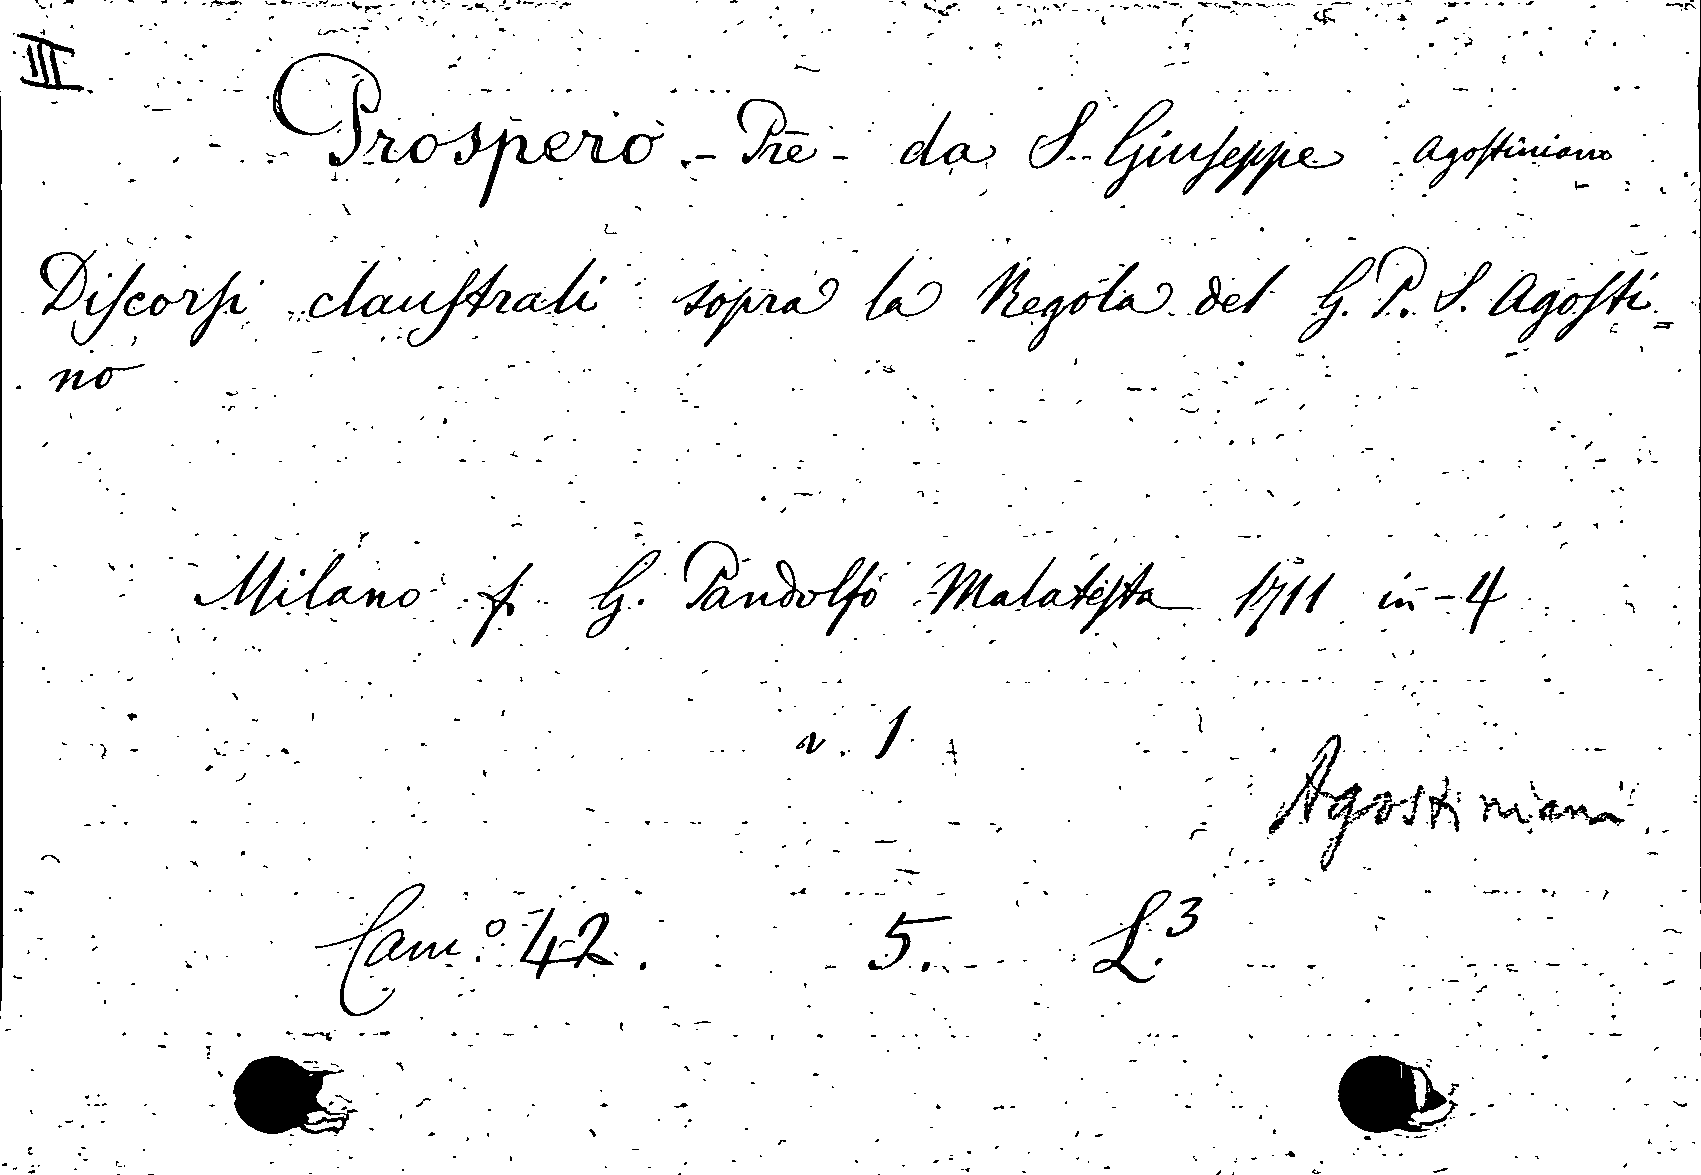 III
Prospero - Pre - da S. Giuseppe Agostiniano
Discorsi claustrali sopra la Regola del G. P. S. Agosti-
no
Milano p. G. Pandolfo Malatesta 1711 in-4
v. 1
Agostiniani
Cam.º 42. 5. L.3